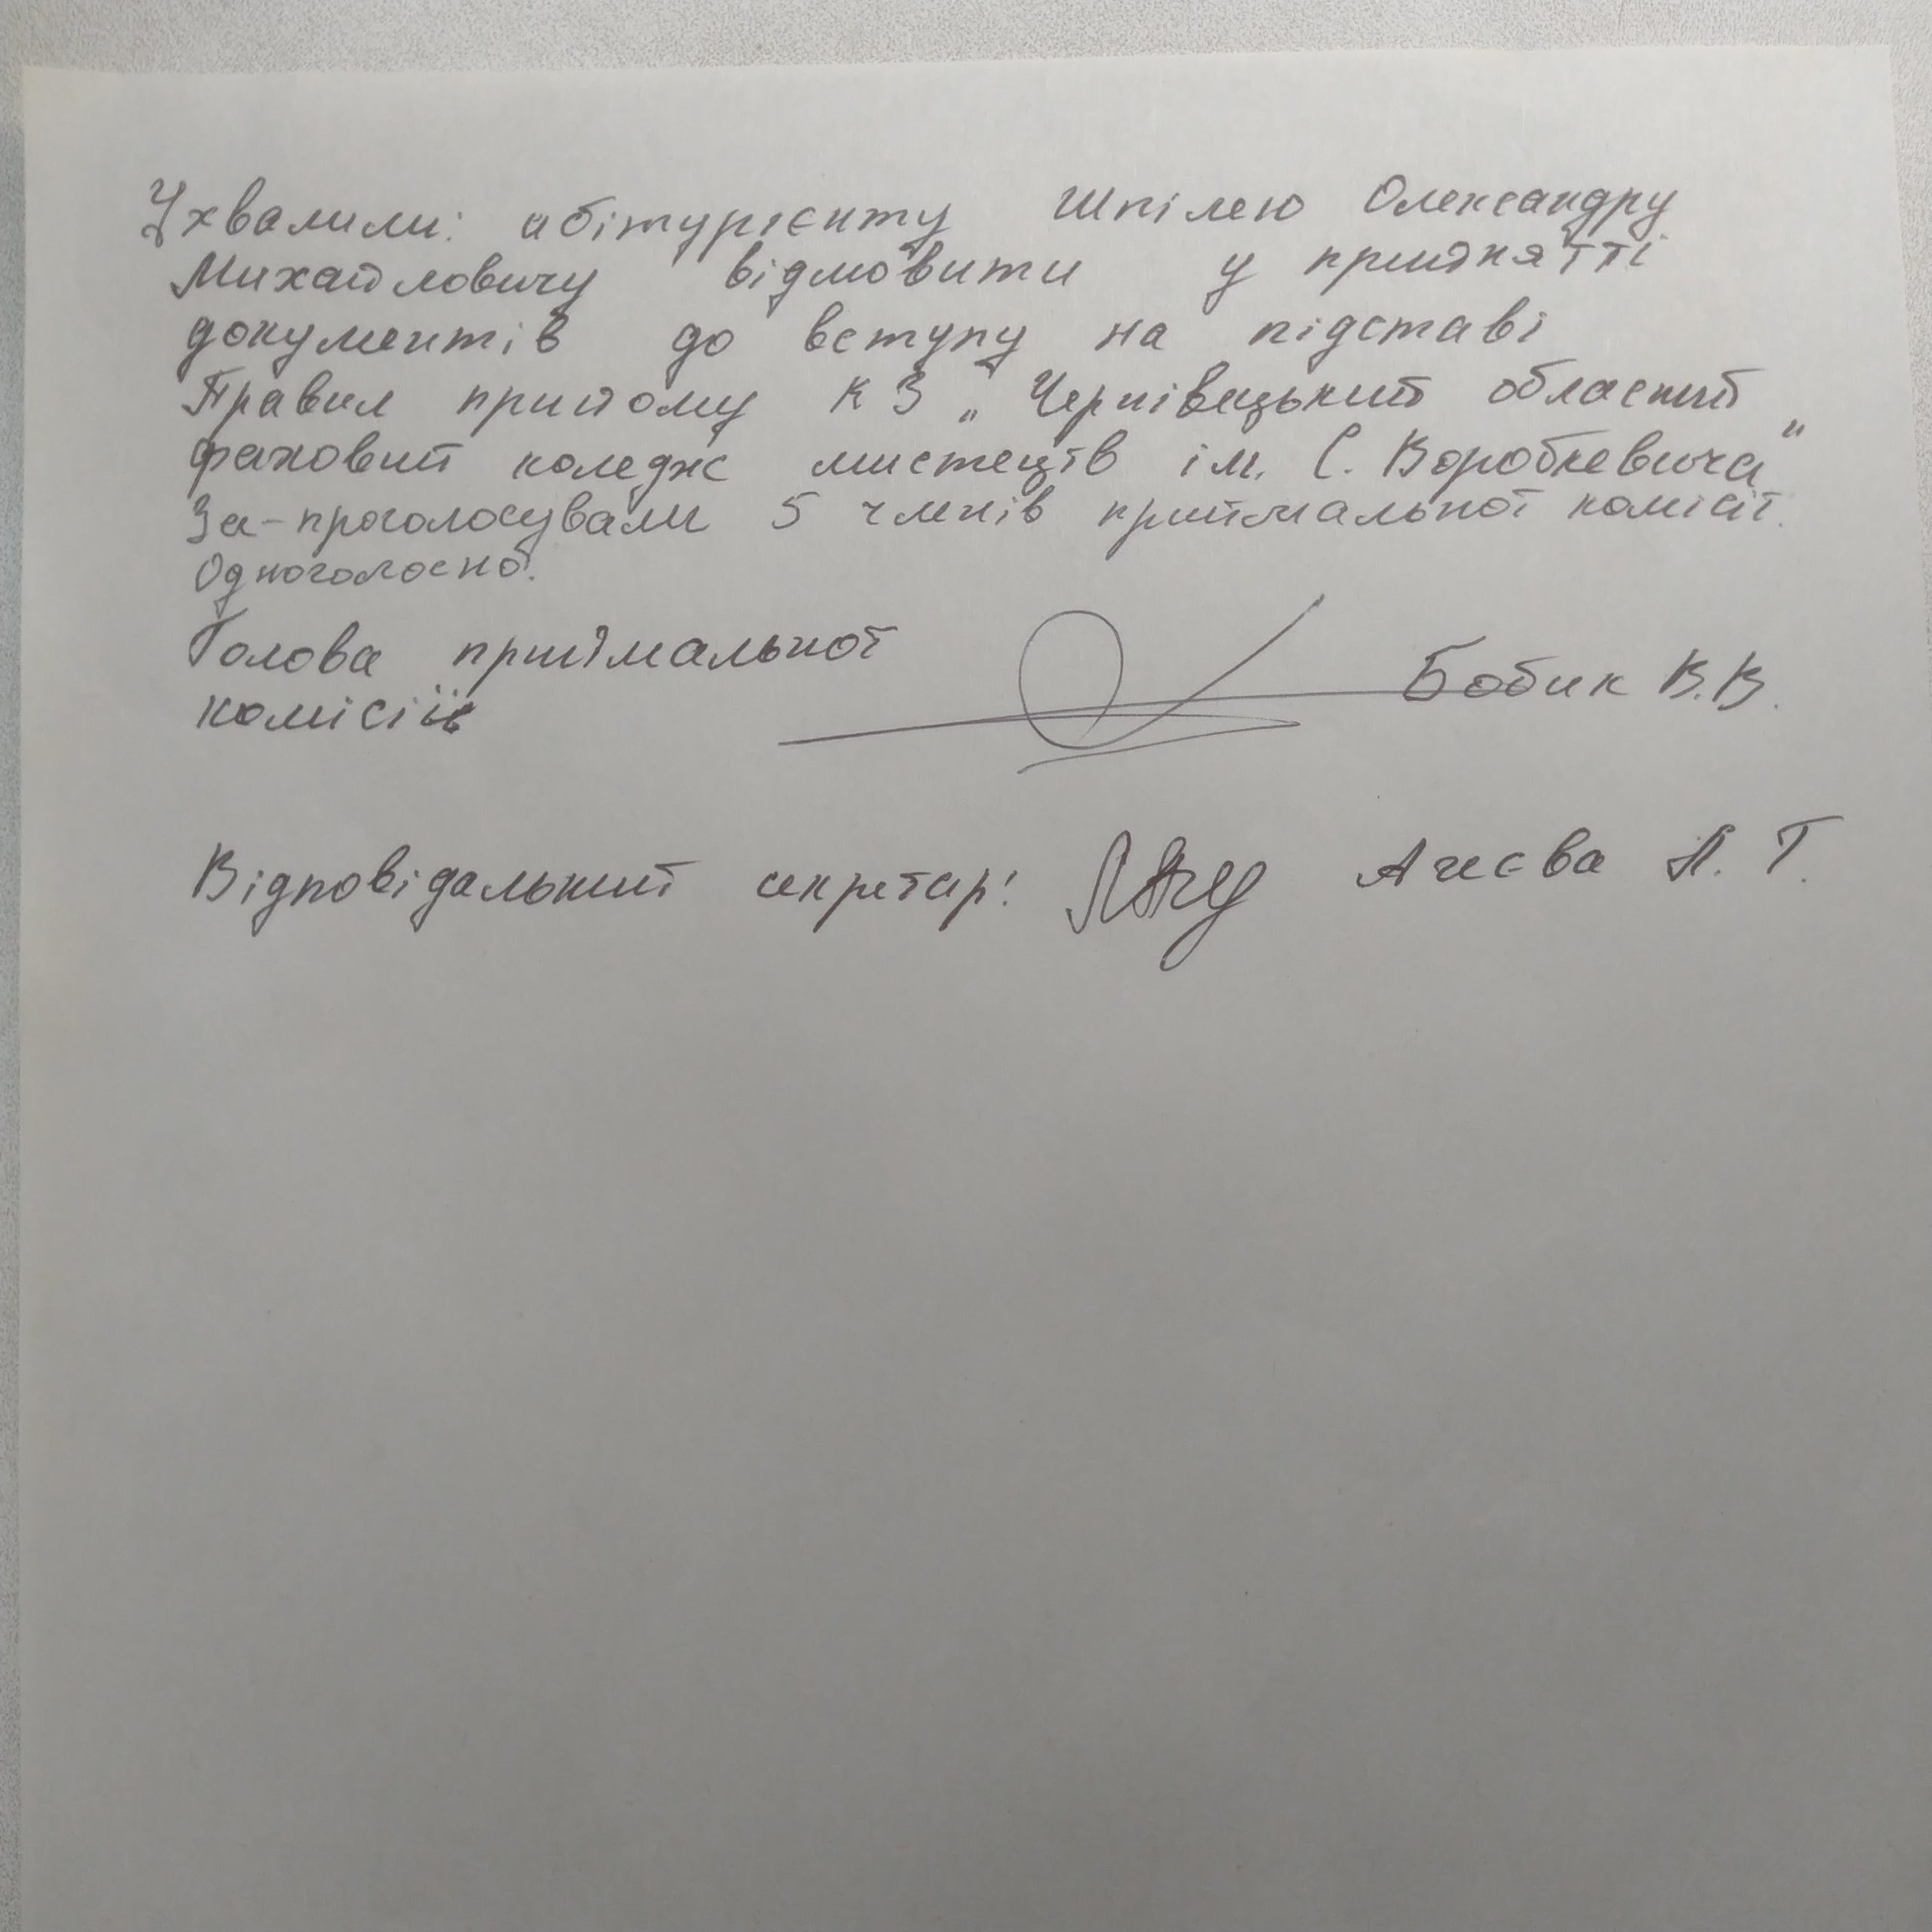 Ухвалили: абітурієнту Шпілею Олександру
Михайловичу відмовити у прийнятті
документів до вступу на підставі
Правил прийому КЗ „Чернівецький обласний
фаховий коледж мистецтв ім. С. Воробкевича"
За-проголосували 5 членів приймальної комісії.
Одноголосно.
Голова приймальної
комісії Бобик В.В.
Відповідальний секретар: Агєєва Л. Т.